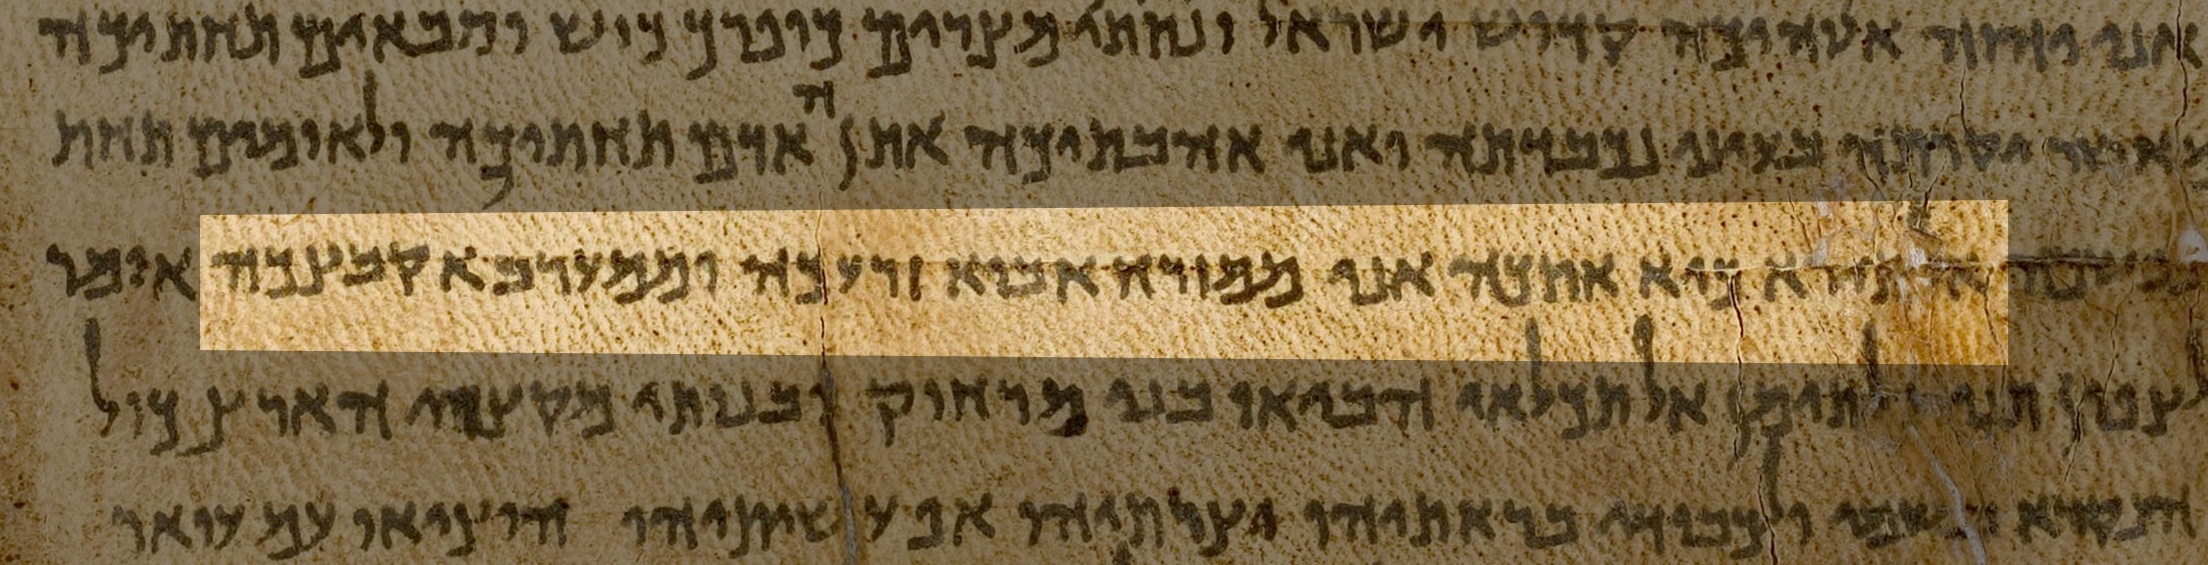 אני יהוה אלוהיכה קדוש ישראל ונתתי מצרים כופרך כוש וסבאים תחתיכה
מאשר יקרתה בעיני נכבדתה ואני אהבתיכה אתן האדם תחתיכה ולאומים תחת
נפשכה אל תירא כיא אתכה אני ממזרח אביא זרעכה וממערב אקבצכה אומר
לצפון תני ולתימן אל תכלאי הביאי בני מרחוק ובנותי מקצוי הארץ כול
הנקרא בשמי ולכבודי בראתיהו יצרתיהו אפ עשיתיהו הוציאו עמ עואר